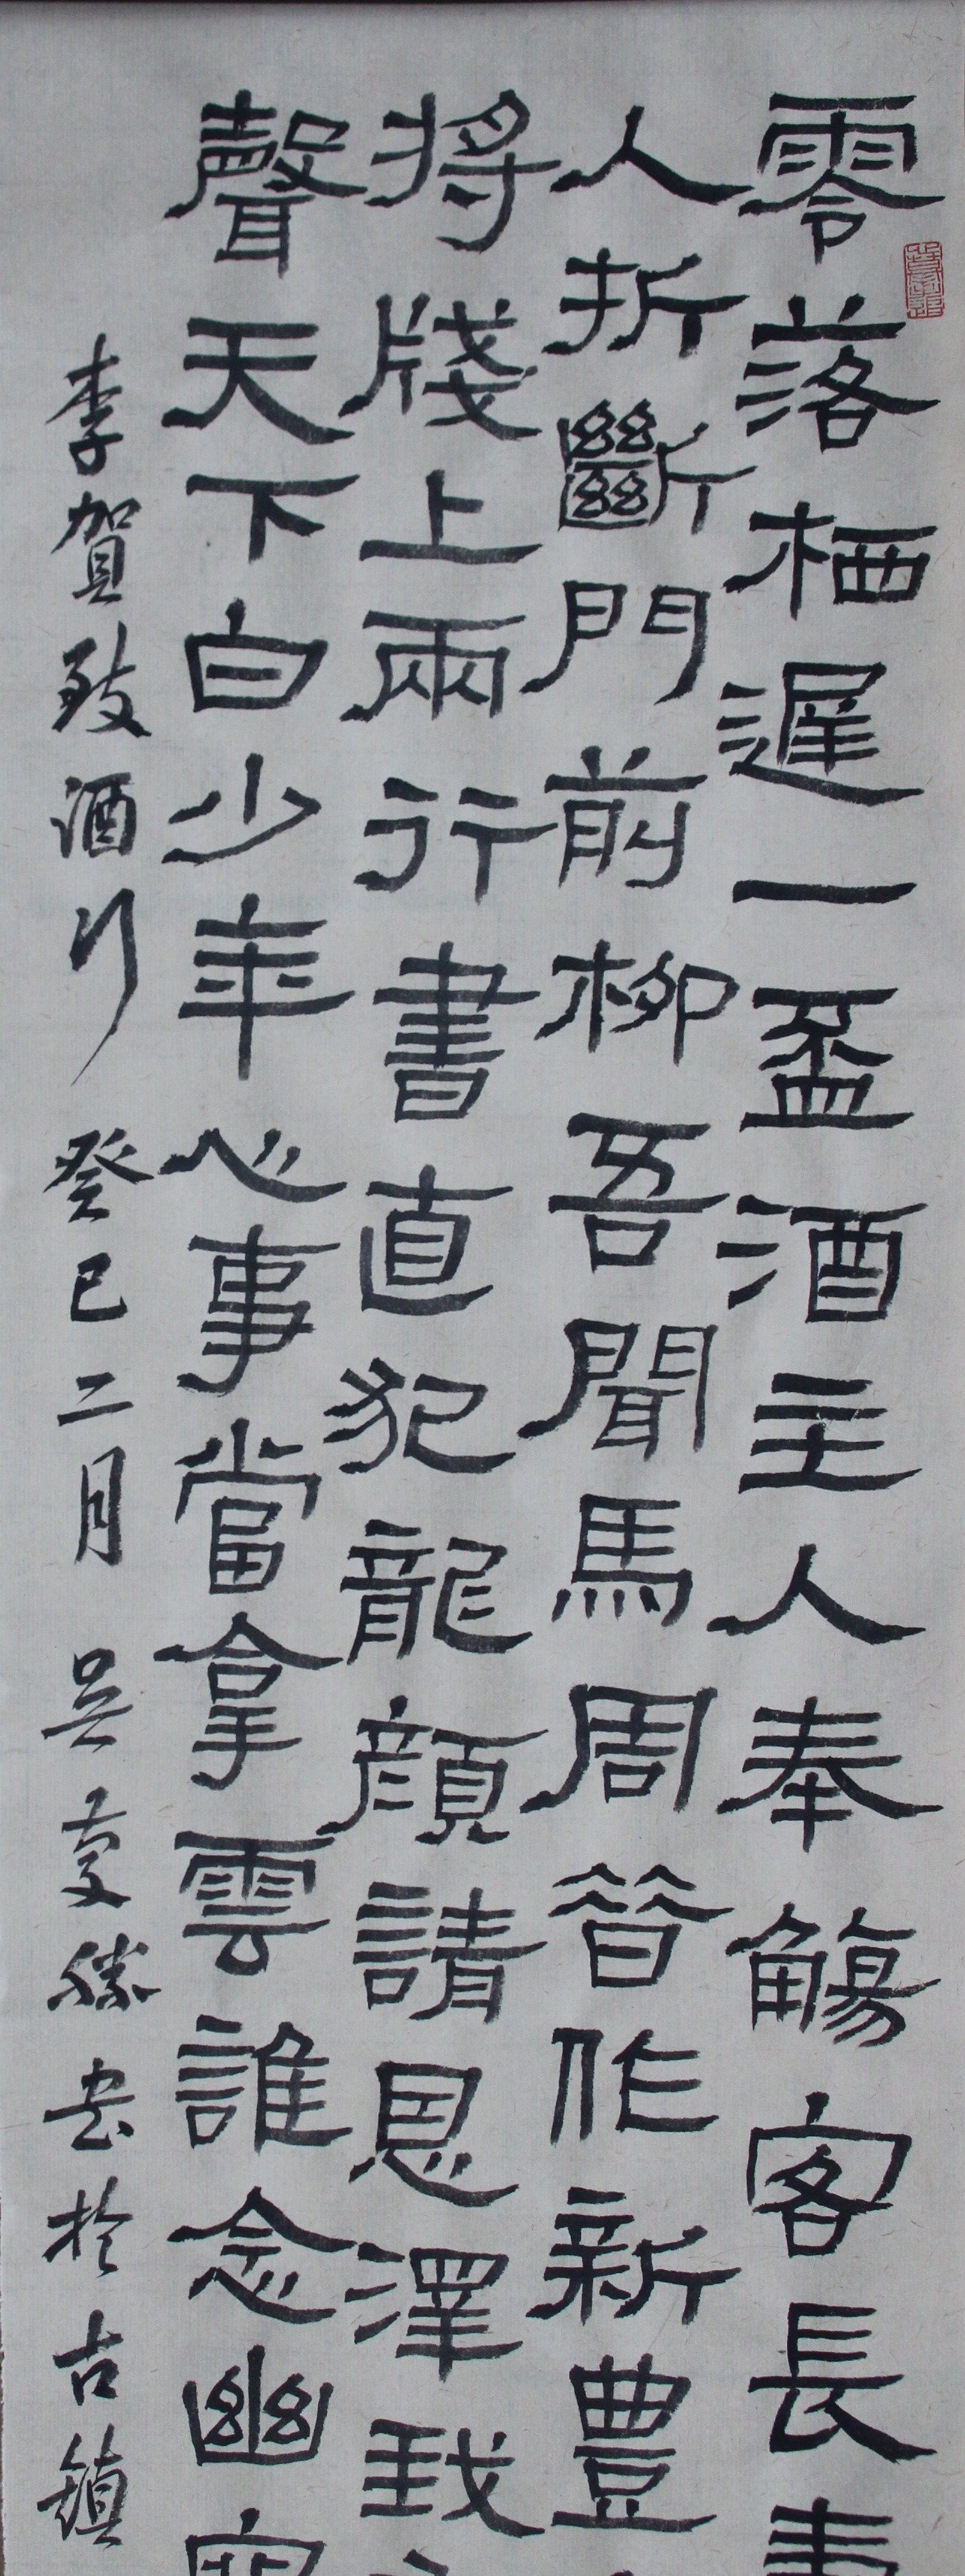 零落栖遲一盃酒主人奉觴客長壽
人折斷門前柳吾聞馬周昔作新豊
将牋上兩行書直犯龍顔請恩澤我
聲天下白少年心事當拿雲誰念幽寒
李賀致酒行 癸巳二月 吳慶勝书於古鎮